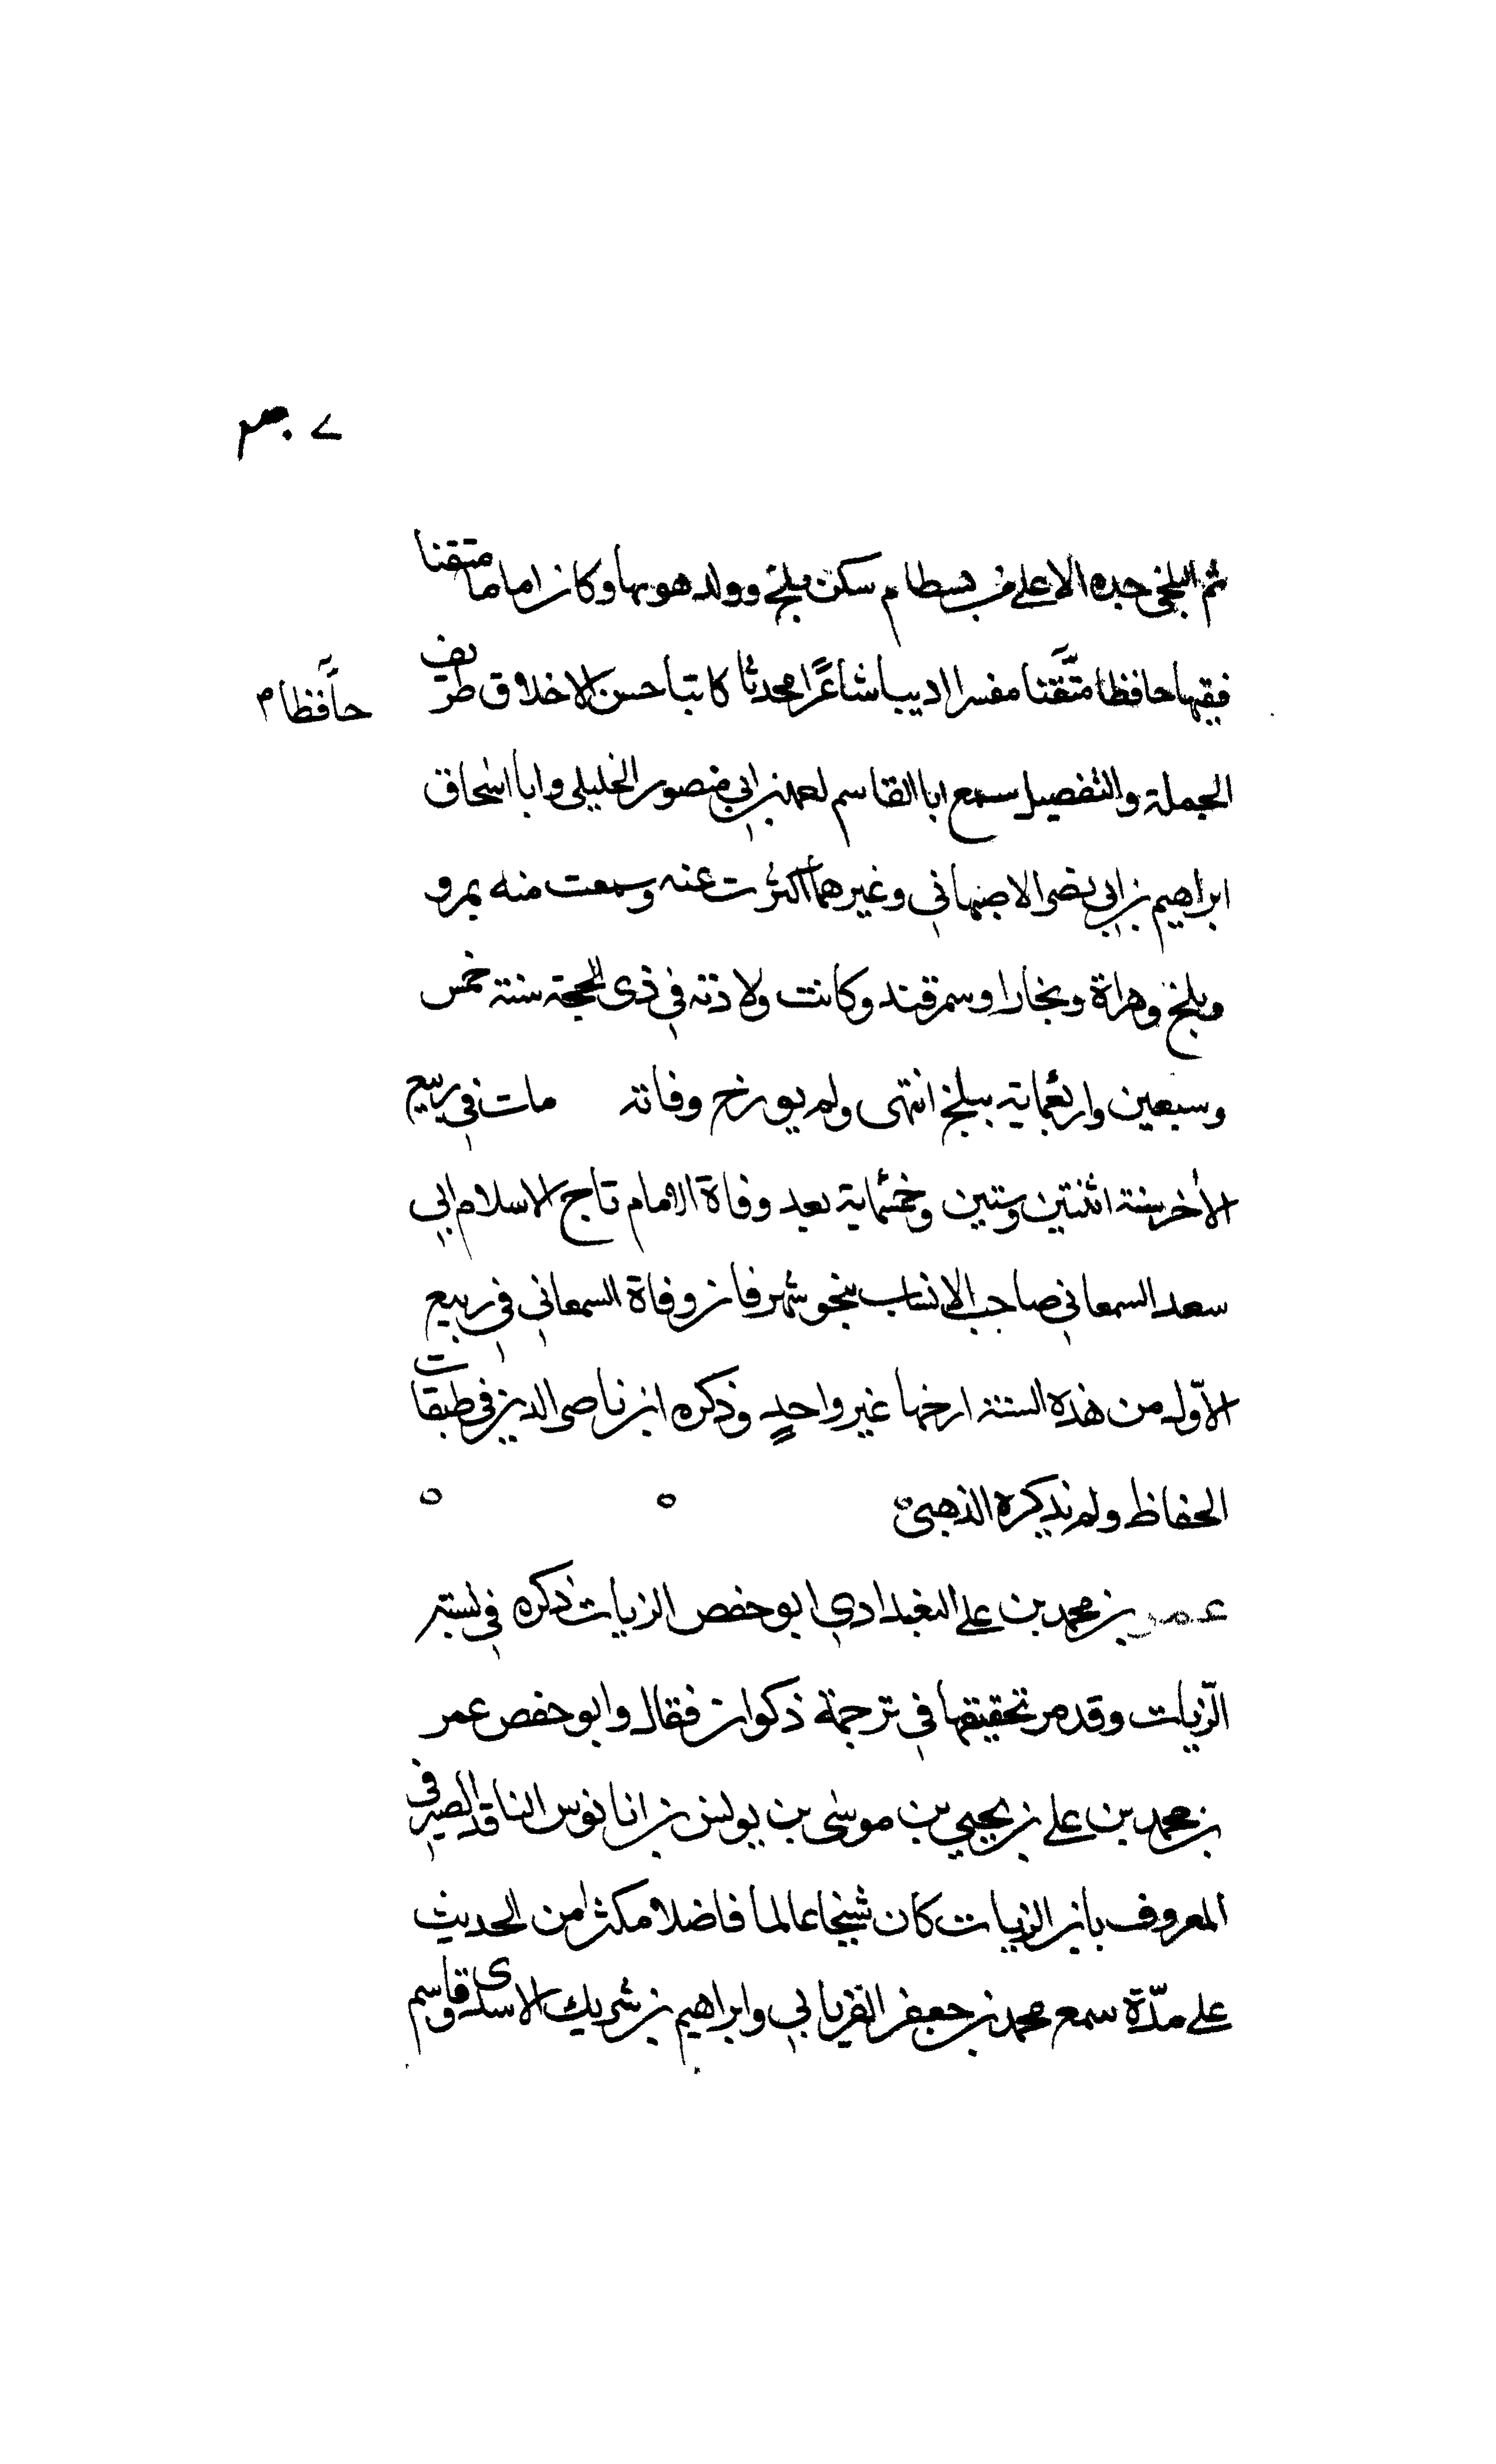 ثم البلخي جده الاعلى من بسطام سكن بلخ وولد هو بها وكان اماما متقنا
فقيها حافظا متقنا مفسرا اديبا شاعرا محدثا كاتبا حسن الاخلاق ظريف
حافظا م
الجملة والتفصيل سمع ابا القاسم احمد بن ابي منصور الخليلي وابا اسحاق
ابراهيم بن ابي نصر الاصبهاني وغيرهما اكثرت عنه وسمعت منه بمرو
وبلخ وهراة وبخارا وسمرقند وكانت ولادته في ذي الحجة سنة خمس
وسبعين واربعماية ببلخ انتهى ولم يورخ وفاته مات في ربيع
الاخر سنة اثنتين وستين وخمسماية بعد وفاة الامام تاج الاسلام ابي
سعد السمعاني صاحب الانساب بنحو شهر فان وفاة السمعاني في ربيع
الاول من هذه السنة ارخها غير واحد وذكره ابن ناصر الدين في طبقات
الحفاظ ولم يذكره الذهبي
عمر بن محمد بن علي البغدادي ابو حفص الزيات ذكره في نسبة
الزيات وقد مر تحقيقها في ترجمة ذكوان فقال وابو حفص عمر
بن محمد بن علي بن يحيى بن موسى بن يونس بن انانوس الناقد الصيرفي
المعروف بابن الزيات كان شيخا عالما فاضلا مكثرا من الحديث
على مدة سمع محمد بن جعفر الفريابي وابراهيم بن شريك الاسدي وقاسم